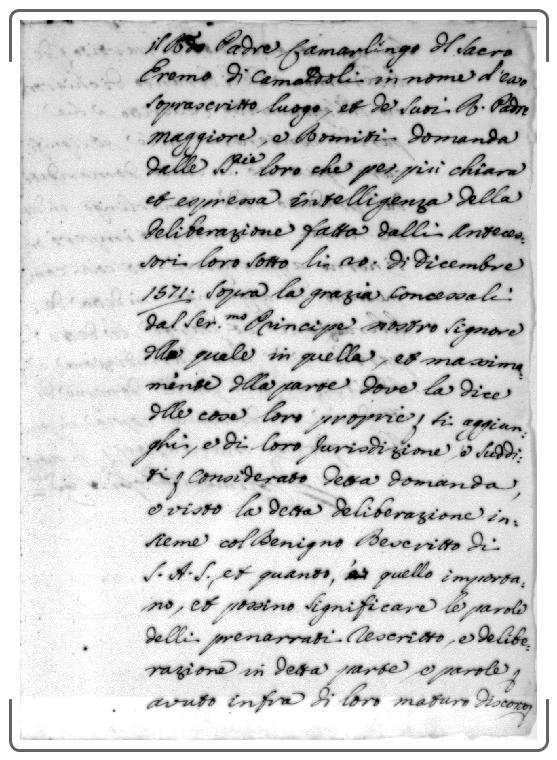 il Rdo Padre Camarlingo dl Sacro
Eremo di Camaldoli in nome d'esso
soprascritto luogo, et de suoi R. Padre
Maggiore, e Romiti domanda
dalle S.rie loro che per più chiara
et espressa intelligenza della
deliberazione fatta dalli Anteces=
sori loro sotto li 20. di dicembre
1571: sopra la grazia concessali
dal Ser.mo Principe nostro Signore
dlla quale in quella, et massima=
mente dlla parte dove la dice
dlle cose loro proprie, si aggiun=
ghi, e di loro Jurisdizione, e suddi=
ti, considerato detta domanda,
e visto la detta deliberazione in=
sieme col Benigno Rescritto di
S. A. S., et quanto, in quello importa=
no, et possino significare le parole
delli prenarrati Rescritto, e delibe=
razione in detta parte, e parole,
avuto infra di loro maturo discorso,